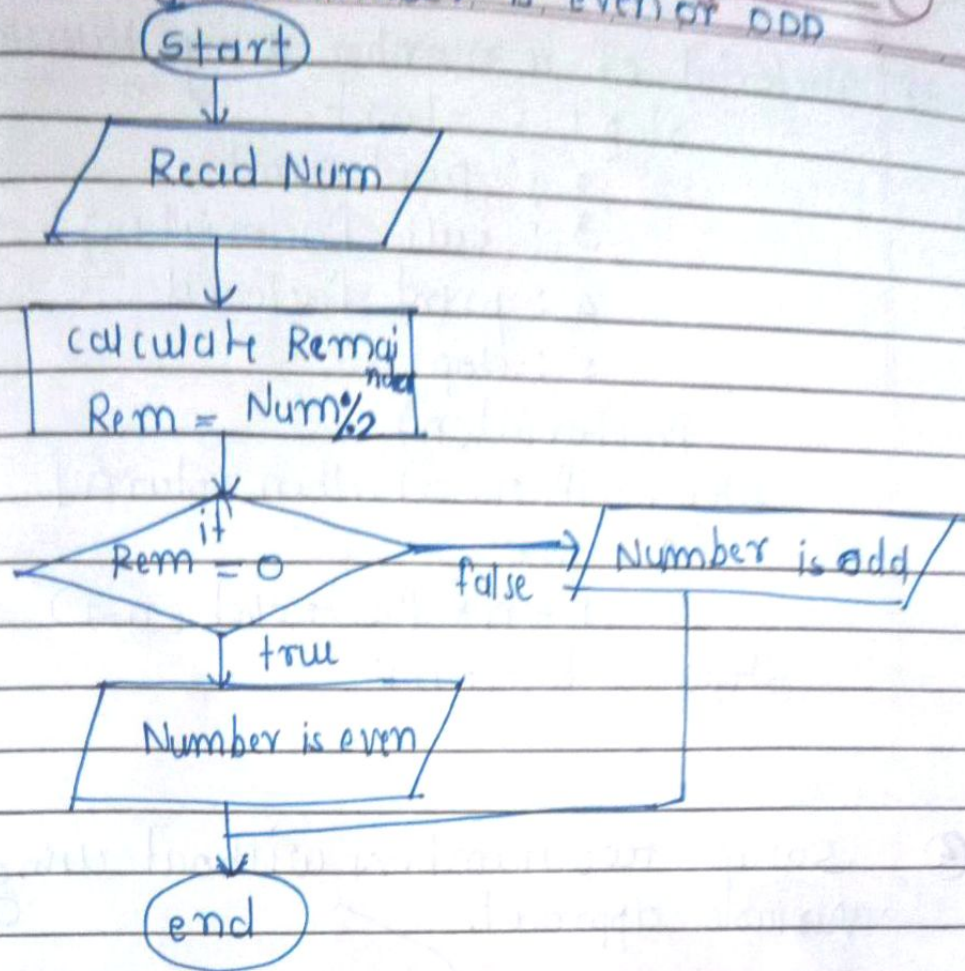 is even or ODD
Start
Read Num
calculate Remainder
Rem = Num%2
if
Rem = 0
false
Number is odd
true
Number is even
end